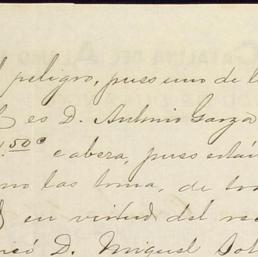 peligro, pues uno de l
es D. Antonio Garza
.50 c cabera, pues está
no las toma, de to
en virtud del re
D. Miguel Sol